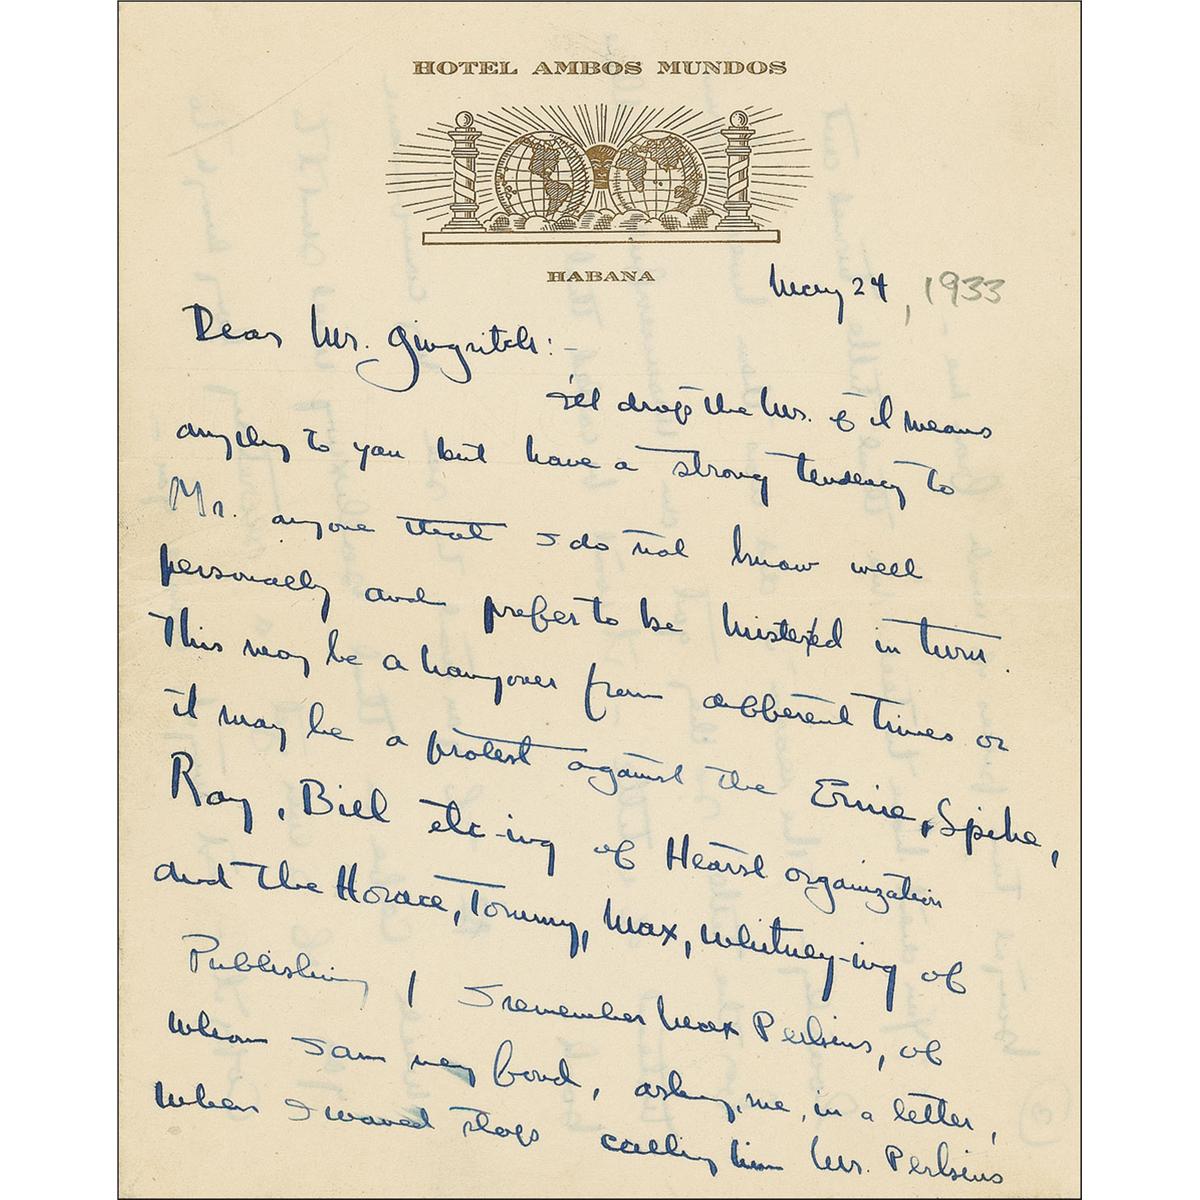 HOTEL AMBOS MUNDOS
HABANA
May 24, 1933
Dear Mr. Gingritch:-
I'll drop the Mr. if it means
anything to you but have a strong tendency to
Mr. anyone that I do not know well
personally and prefer to be Mistered in turn.
This may be a hangover from different times or
it may be a protest against the Ernie, Spike,
Ray, Bill etc-ing of Hearst organization
and the Horace, Tommy, Max, Whitney-ing of
Publishing / I remember Max Perkins, of
whom I am very fond, asking, me, in a letter,
when I would stop calling him Mr. Perkins